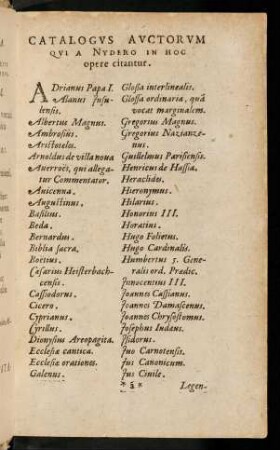 CATALOGVS AVCTORVM
QVI A NYDERO IN HOC
opere citantur.
ADrianus Papa I.
Alanus Insulensis.
Albertus Magnus.
Ambrosius.
Aristoteles.
Arnoldus de villa noua
Auerroës, qui allegatur Commentator.
Auicenna.
Augustinus.
Basilius.
Beda.
Bernardus.
Biblia sacra.
Boëtius.
Cæsarius Heisterbachcensis.
Cassiodorus.
Cicero.
Cyprianus.
Cyrillus.
Dionysius Areopagita.
Ecclesiæ cantica.
Ecclesiæ orationes.
Galenus.
Glossa interlinealis.
Glossa ordinaria, quã
vocãt marginalem.
Gregorius Magnus.
Gregorius Nazianzenus.
Guillelmus Parisiensis.
Henricus de Hassia.
Heraclides.
Hieronymus.
Hilarius.
Honorius III.
Horatius.
Hugo Folietus.
Hugo Cardinalis.
Humbertus 5. Generalis ord. Prædic.
Innocentius III.
Joannes Cassianus.
Joannes Damascenus.
Joannes Chrysostomus.
Josephus Iudæus.
Isidorus.
Iuo Carnotensis.
Jus Canonicum.
Jus Ciuile.
Legen-